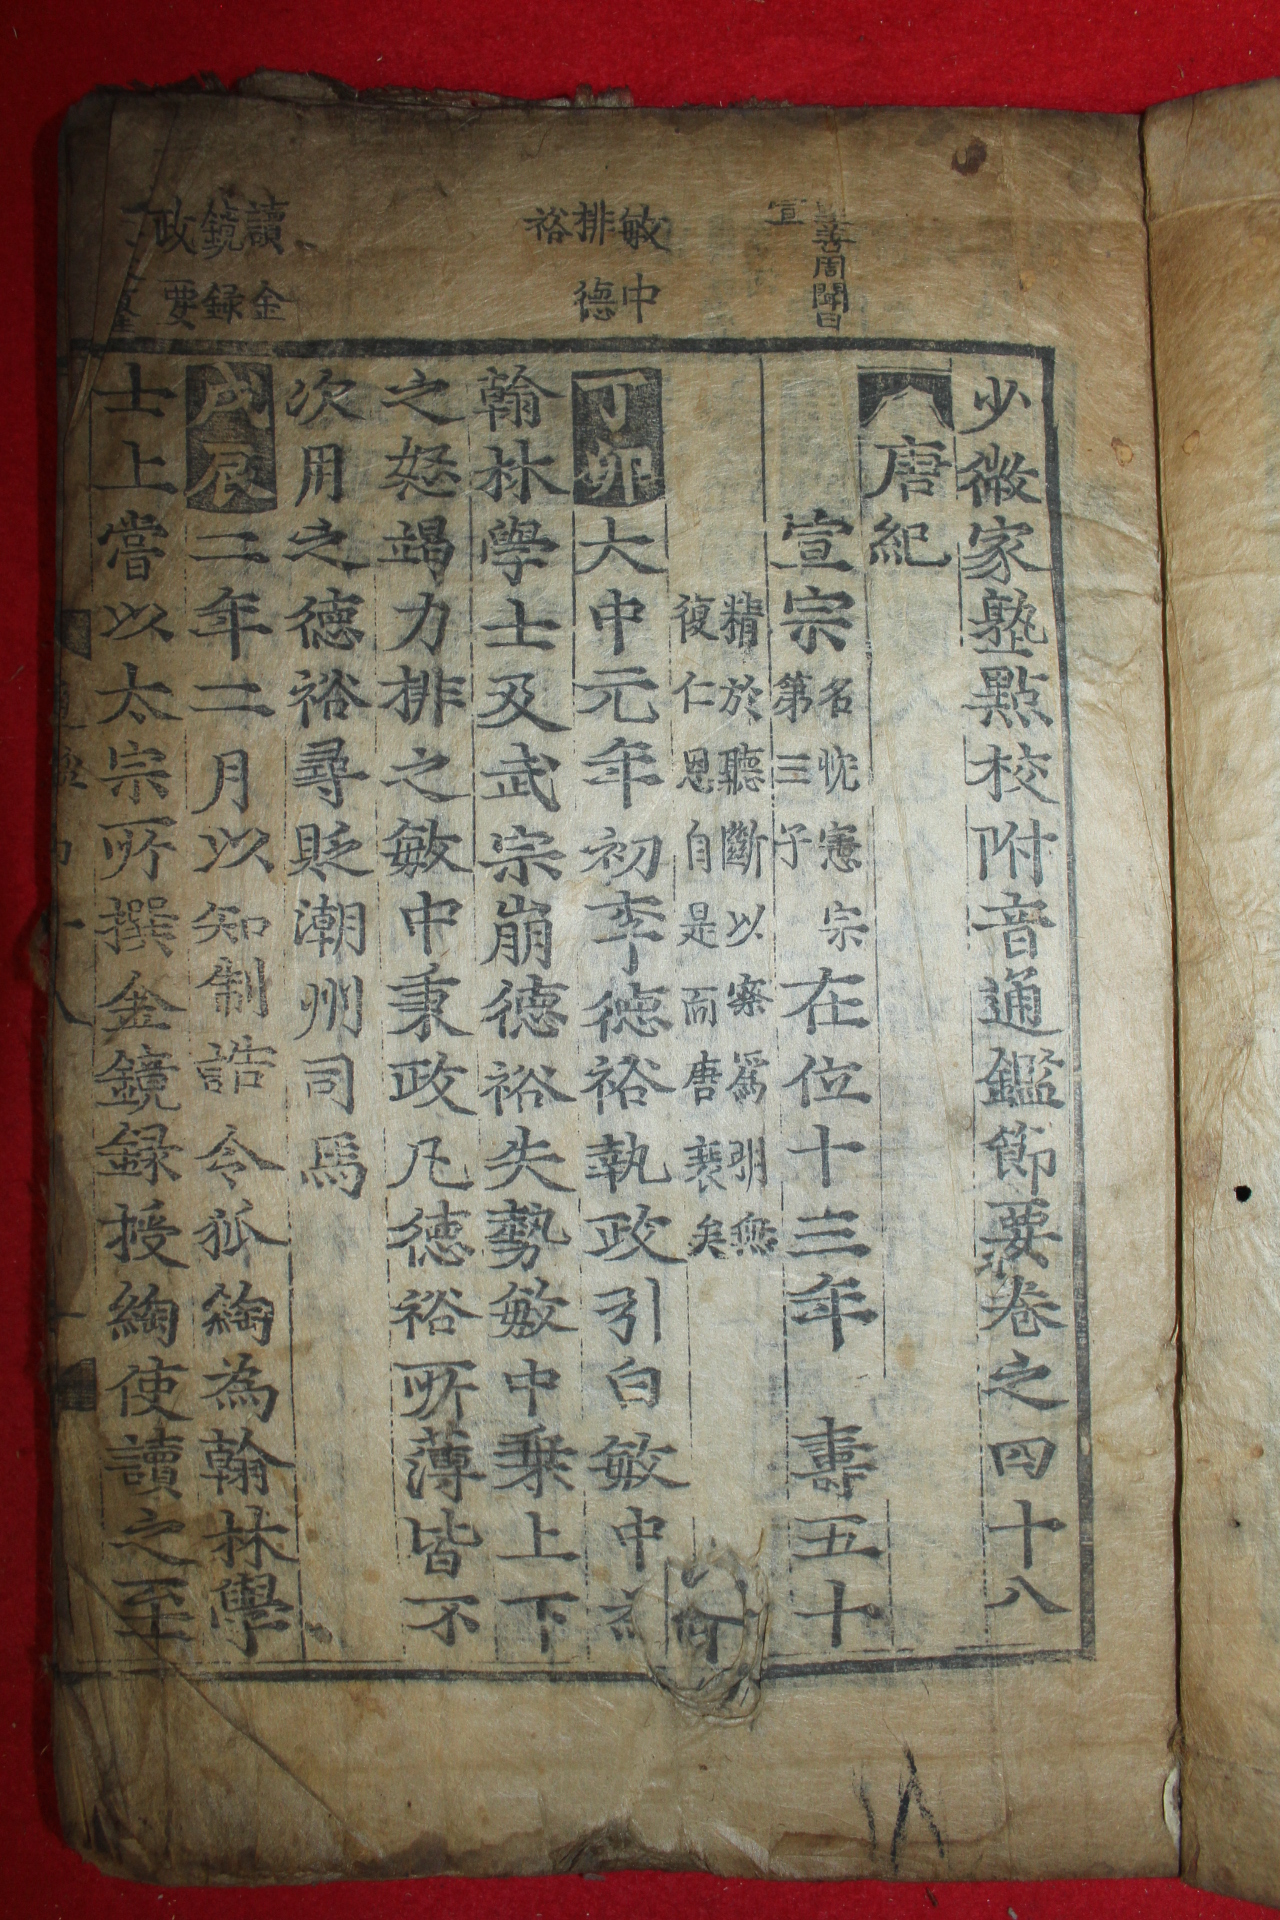 少微家塾點校附音通鑑節要卷之四十八
唐紀
宣宗
名忱憲宗
第三子
在位十三年 壽五十
精於聽斷以察爲明無
復仁恩自是而唐衰矣
丁卯大中元年初李德裕執政引白敏中
翰林學士及武宗崩德裕失勢敏中乗上下
之怒竭力排之敏中秉政凡德裕所薄皆不
次用之德裕尋貶潮州司馬
戊辰二年二月以知制誥令狐綯為翰林學
士上嘗以太宗所撰金鏡録授綯使讀之至
善周聞曰
宣
敏中
排德
裕
讀金
鏡録
政要